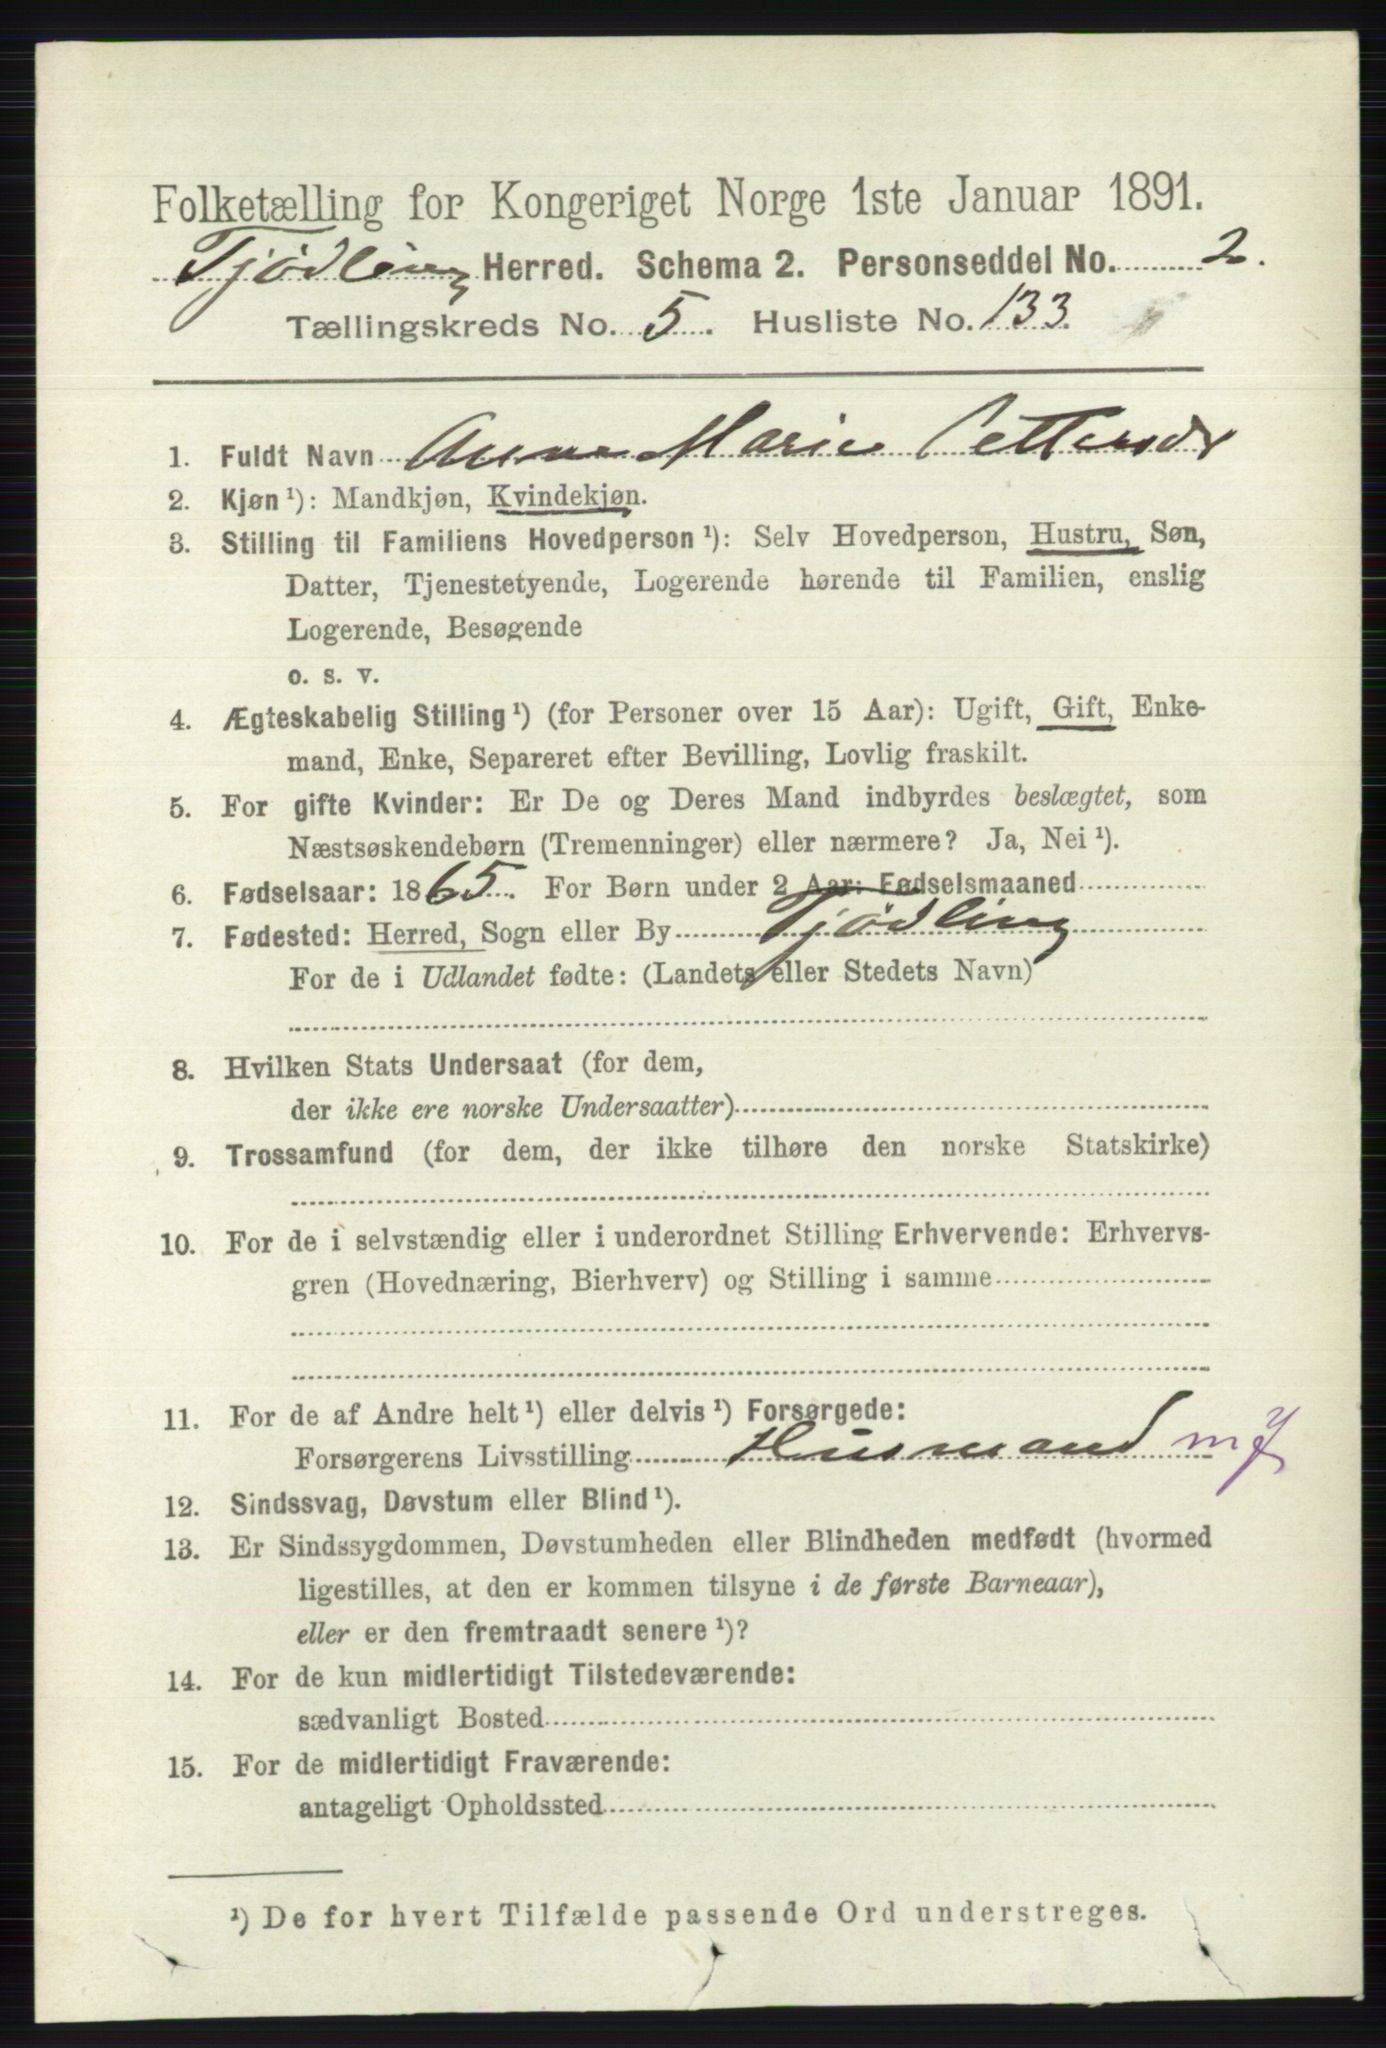 Folketælling for Kongeriget Norge 1ste Januar 1891.
Tjødling Herred. Schema 2. Personseddel No. 2.
Tællingskreds No. 5. Husliste No. 133.
1. Fuldt Navn Anne Marie Pettersdr
2. Kjøn ¹): Mandkjøn, Kvindekjøn.
3. Stilling til Familiens Hovedperson ¹): Selv Hovedperson, Hustru, Søn,
Datter, Tjenestetyende, Logerende hørende til Familien, enslig
Logerende, Besøgende
o. s. v.
4. Ægteskabelig Stilling ¹) (for Personer over 15 Aar): Ugift, Gift, Enke-
mand, Enke, Separeret efter Bevilling, Lovlig fraskilt.
5. For gifte Kvinder: Er De og Deres Mand indbyrdes beslægtet, som
Næstsøskendebørn (Tremenninger) eller nærmere? Ja, Nei ¹).
6. Fødselsaar: 1865. For Børn under 2 Aar: Fødselsmaaned
7. Fødested: Herred, Sogn eller By Tjødling
For de i Udlandet fødte: (Landets eller Stedets Navn)
8. Hvilken Stats Undersaat (for dem,
der ikke ere norske Undersaatter)
9. Trossamfund (for dem, der ikke tilhøre den norske Statskirke)
10. For de i selvstændig eller i underordnet Stilling Erhvervende: Erhvervs-
gren (Hovednæring, Bierhverv) og Stilling i samme
11. For de af Andre helt ¹) eller delvis ¹) Forsørgede:
Forsørgerens Livsstilling Husmand
12. Sindssvag, Døvstum eller Blind ¹).
13. Er Sindssygdommen, Døvstumheden eller Blindheden medfødt (hvormed
ligestilles, at den er kommen tilsyne i de første Barneaar),
eller er den fremtraadt senere ¹)?
14. For de kun midlertidigt Tilstedeværende:
sædvanligt Bosted
15. For de midlertidigt Fraværende:
antageligt Opholdssted
¹) De for hvert Tilfælde passende Ord understreges.